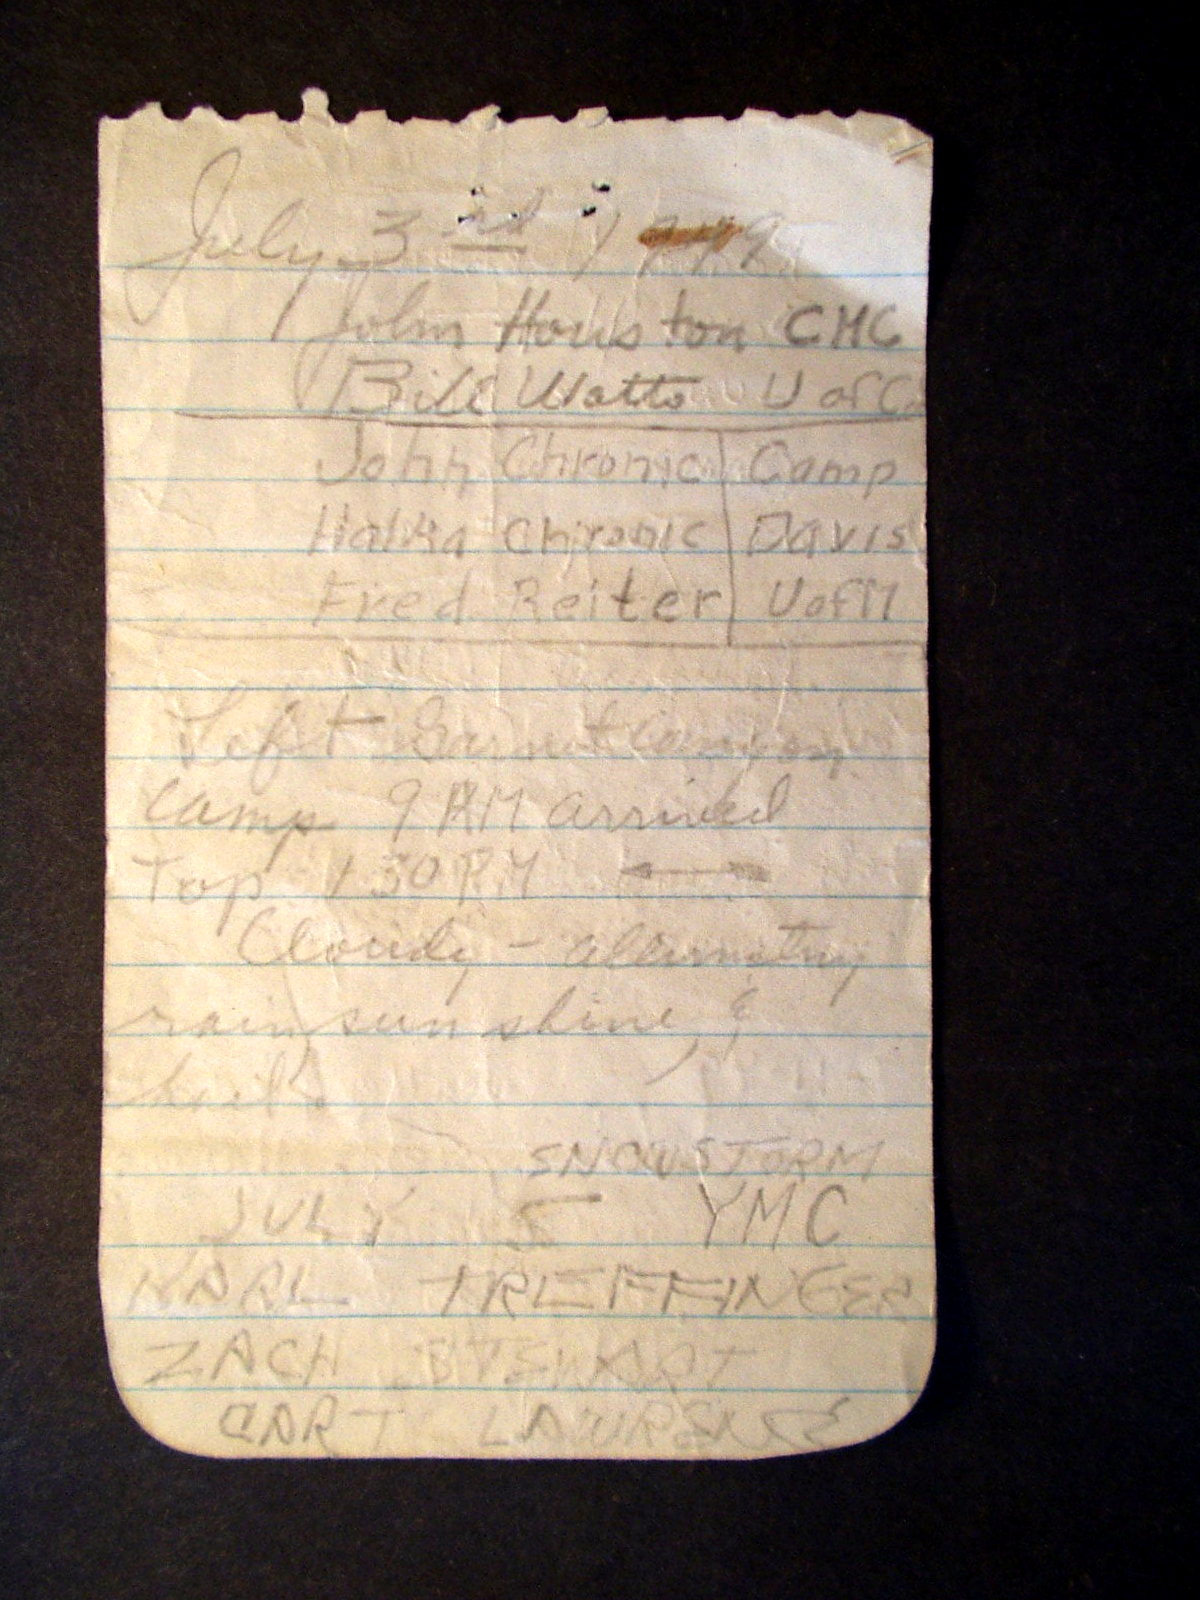 July 3rd, 1949
John Houston CMC
Bill Watts U of C
John Chronic Camp
Halka Chronic Davis
Fred Reiter U of M
Left Garnet Canyon
camp 9 AM arrived
Top 1 30 PM
Cloudy - alternating
rain, sunshine, &
hail
SNOWSTORM
JULY 5 YMC
KARL TREFFINGER
ZACH STEWART
LAWRENCE